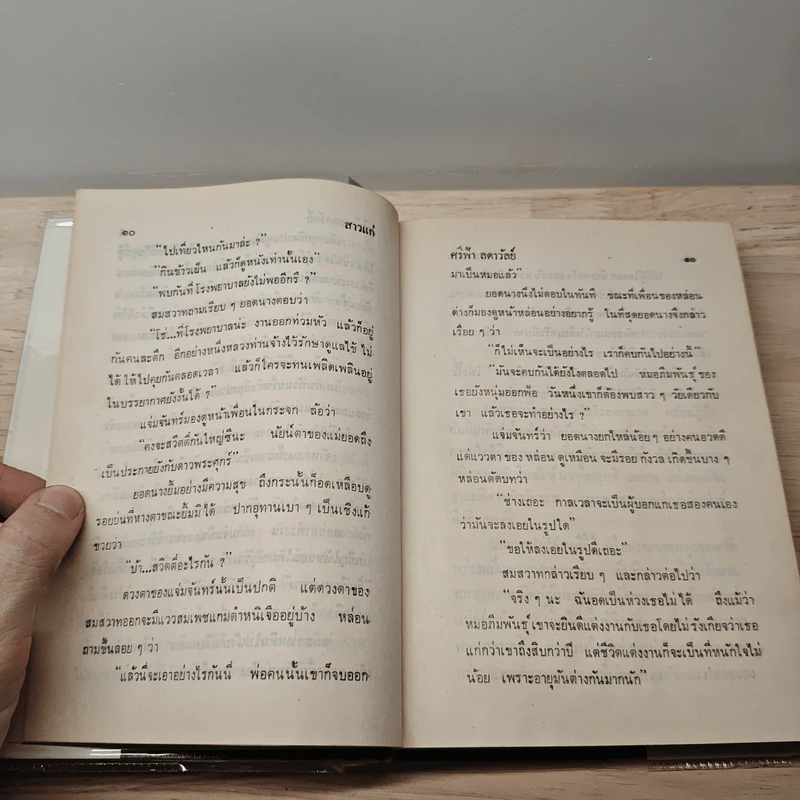 ๑๐
สาวแก่
"ไปเที่ยวไหนกันมาล่ะ ?"
"กินข้าวเย็น แล้วก็ดูหนังเท่านั้นเอง"
"พบกันที่โรงพยาบาลยังไม่พออีกรึ ?"
สมสวาทถามเรียบ ๆ ยอดนางตอบว่า
"โธ่...ที่โรงพยาบาลน่ะ งานออกท่วมหัว แล้วก็อยู่
กันคนละตึก อีกอย่างหนึ่งหลวงท่านจ้างไว้รักษาดูแลไข้ ไม่
ได้ ให้ไปคุยกันตลอดเวลา แล้วก็ใครจะทนเพลิดเพลินอยู่
ในบรรยากาศยังงั้นได้ ?"
แจ่มจันทร์มองดูหน้าเพื่อนในกระจก ล้อว่า
"คงจะสวีตตี้กันใหญ่ซีนะ นัยน์ตาของแม่ยอดถึง
เป็นประกายยังกับดาวพระศุกร์"
ยอดนางยิ้มอย่างมีความสุข ถึงกระนั้นก็อดเหลือบดู
รอยย่นที่หางตาขณะยิ้มมิได้ ปากอุทานเบา ๆ เป็นเชิงแก้
ขวยว่า
"บ้า...สวีตตี้อะไรกัน ?"
ดวงตาของแจ่มจันทร์นั้นเป็นปกติ แต่ดวงตาของ
สมสวาทออกจะมีแววสมเพชแกมตำหนิเจืออยู่บ้าง หล่อน
ถามขึ้นลอย ๆ ว่า
"แล้วนี่จะเอาอย่างไรกันนี่ พ่อคนนั้นเขาก็จบออก
ศรีฟ้า ลดาวัลย์
๑๑
มาเป็นหมอแล้ว"
ยอดนางนิ่งไม่ตอบในทันที ขณะที่เพื่อนของหล่อน
ต่างก็มองดูหน้าหล่อนอย่างอยากรู้ ในที่สุดยอดนางจึงกล่าว
เรื่อย ๆ ว่า
"ก็ไม่เห็นจะเป็นอย่างไร เราก็คบกันไปอย่างนี้"
"มันจะคบกันได้ยังไงตลอดไป หมอภีมพันธุ์ ของ
เธอยังหนุ่มออกพ้อ วันหนึ่งเขาก็ต้องพบสาว ๆ วัยเดียวกับ
เขา แล้วเธอจะทำอย่างไร ?"
แจ่มจันทร์ว่า ยอดนางยกไหล่น้อยๆ อย่างคนอวดดี
แต่แววตา ของ หล่อน ดูเหมือน จะมีรอย กังวล เกิดขึ้นบาง ๆ
หล่อนตัดบทว่า
"ช่างเถอะ กาลเวลาจะเป็นผู้บอกแกเธอสองคนเอง
ว่ามันจะลงเอยในรูปใด"
"ขอให้ลงเอยในรูปดีเถอะ"
สมสวาทกล่าวเรียบ ๆ และกล่าวต่อไปว่า
"จริง ๆ นะ ฉันอดเป็นห่วงเธอไม่ได้ ถึงแม้ว่า
หมอภีมพันธุ์ เขาจะยินดีแต่งงานกับเธอโดยไม่รังเกียจว่าเธอ
แก่กว่าเขาถึงสิบกว่าปี แต่ชีวิตแต่งงานก็จะเป็นที่หนักใจไม่
น้อย เพราะอายุมันต่างกันมากนัก"